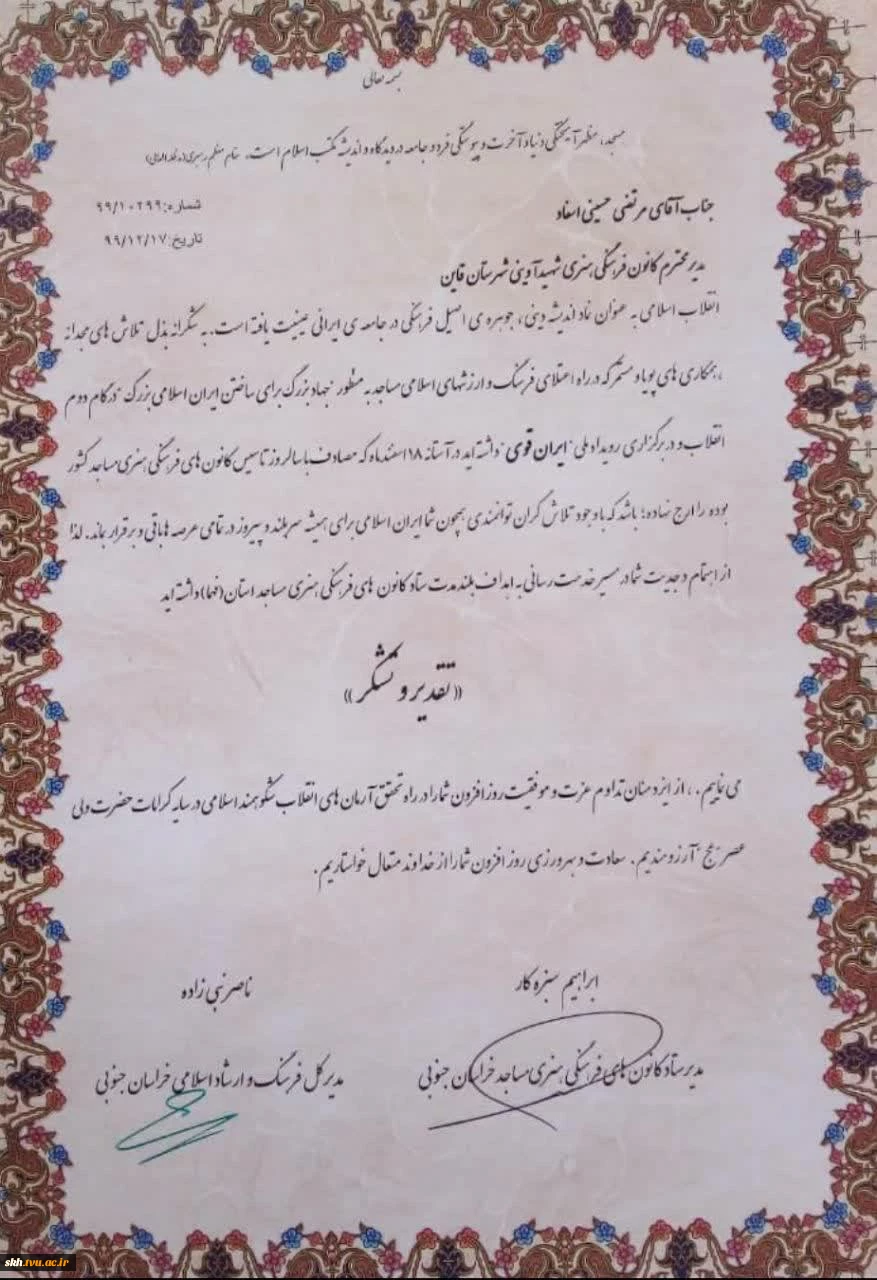 بسمه تعالی
مسجد، مظهر آمیختگی دنیا و آخرت و پیوستگی فرد و جامعه در دیدگاه و اندیشه مکتب اسلام است. مقام معظم رهبری(مدظله العالی)
جناب آقای مرتضی حسینی اسفاد
شماره: ۹۹/۱۰۲۹۹
تاریخ: ۹۹/۱۲/۱۷
مدیر محترم کانون فرهنگی هنری شهید آوینی شهرستان قاین
انقلاب اسلامی به عنوان نماد اندیشه دینی، جوهره ی اصیل فرهنگی در جامعه ی ایرانی عینیت یافته است. به شکرانه بذل تلاش های مجدانه
، همکاری های پویا و مستمر که در راه اعتلای فرهنگ و ارزشهای اسلامی مساجد به منظور "جهاد بزرگ برای ساختن ایران اسلامی بزرگ" در گام دوم
انقلاب و در برگزاری رویداد ملی "ایران قوی" داشته اید در آستانه ۱۸ اسفند ماه که مصادف با سالروز تاسیس کانون های فرهنگی هنری مساجد کشور
بوده را ارج نهاده؛ باشد که با وجود تلاش گران توانمندی همچون شما ایران اسلامی برای همیشه سربلند و پیروز در تمامی عرصه ها باقی و برقرار بماند. لذا
از اهتمام و جدیت شما در مسیر خدمت رسانی به اهداف بلند مدت ستاد کانون های فرهنگی هنری مساجد استان (فهما) داشته اید
«تقدیر و تشکر»
می نماییم. ، از ایزد منان تداوم عزت و موفقیت روزافزون شما را در راه تحقق آرمان های انقلاب شکوهمند اسلامی در سایه کرامات حضرت ولی
عصر "عج" آرزومندیم. سعادت و بهروزی روز افزون شما را از خداوند متعال خواستاریم.
ابراهیم سبزه کار
مدیر ستاد کانون های فرهنگی هنری مساجد خراسان جنوبی
ناصر نبی زاده
مدیر کل فرهنگ و ارشاد اسلامی خراسان جنوبی
skh.tvu.ac.ir